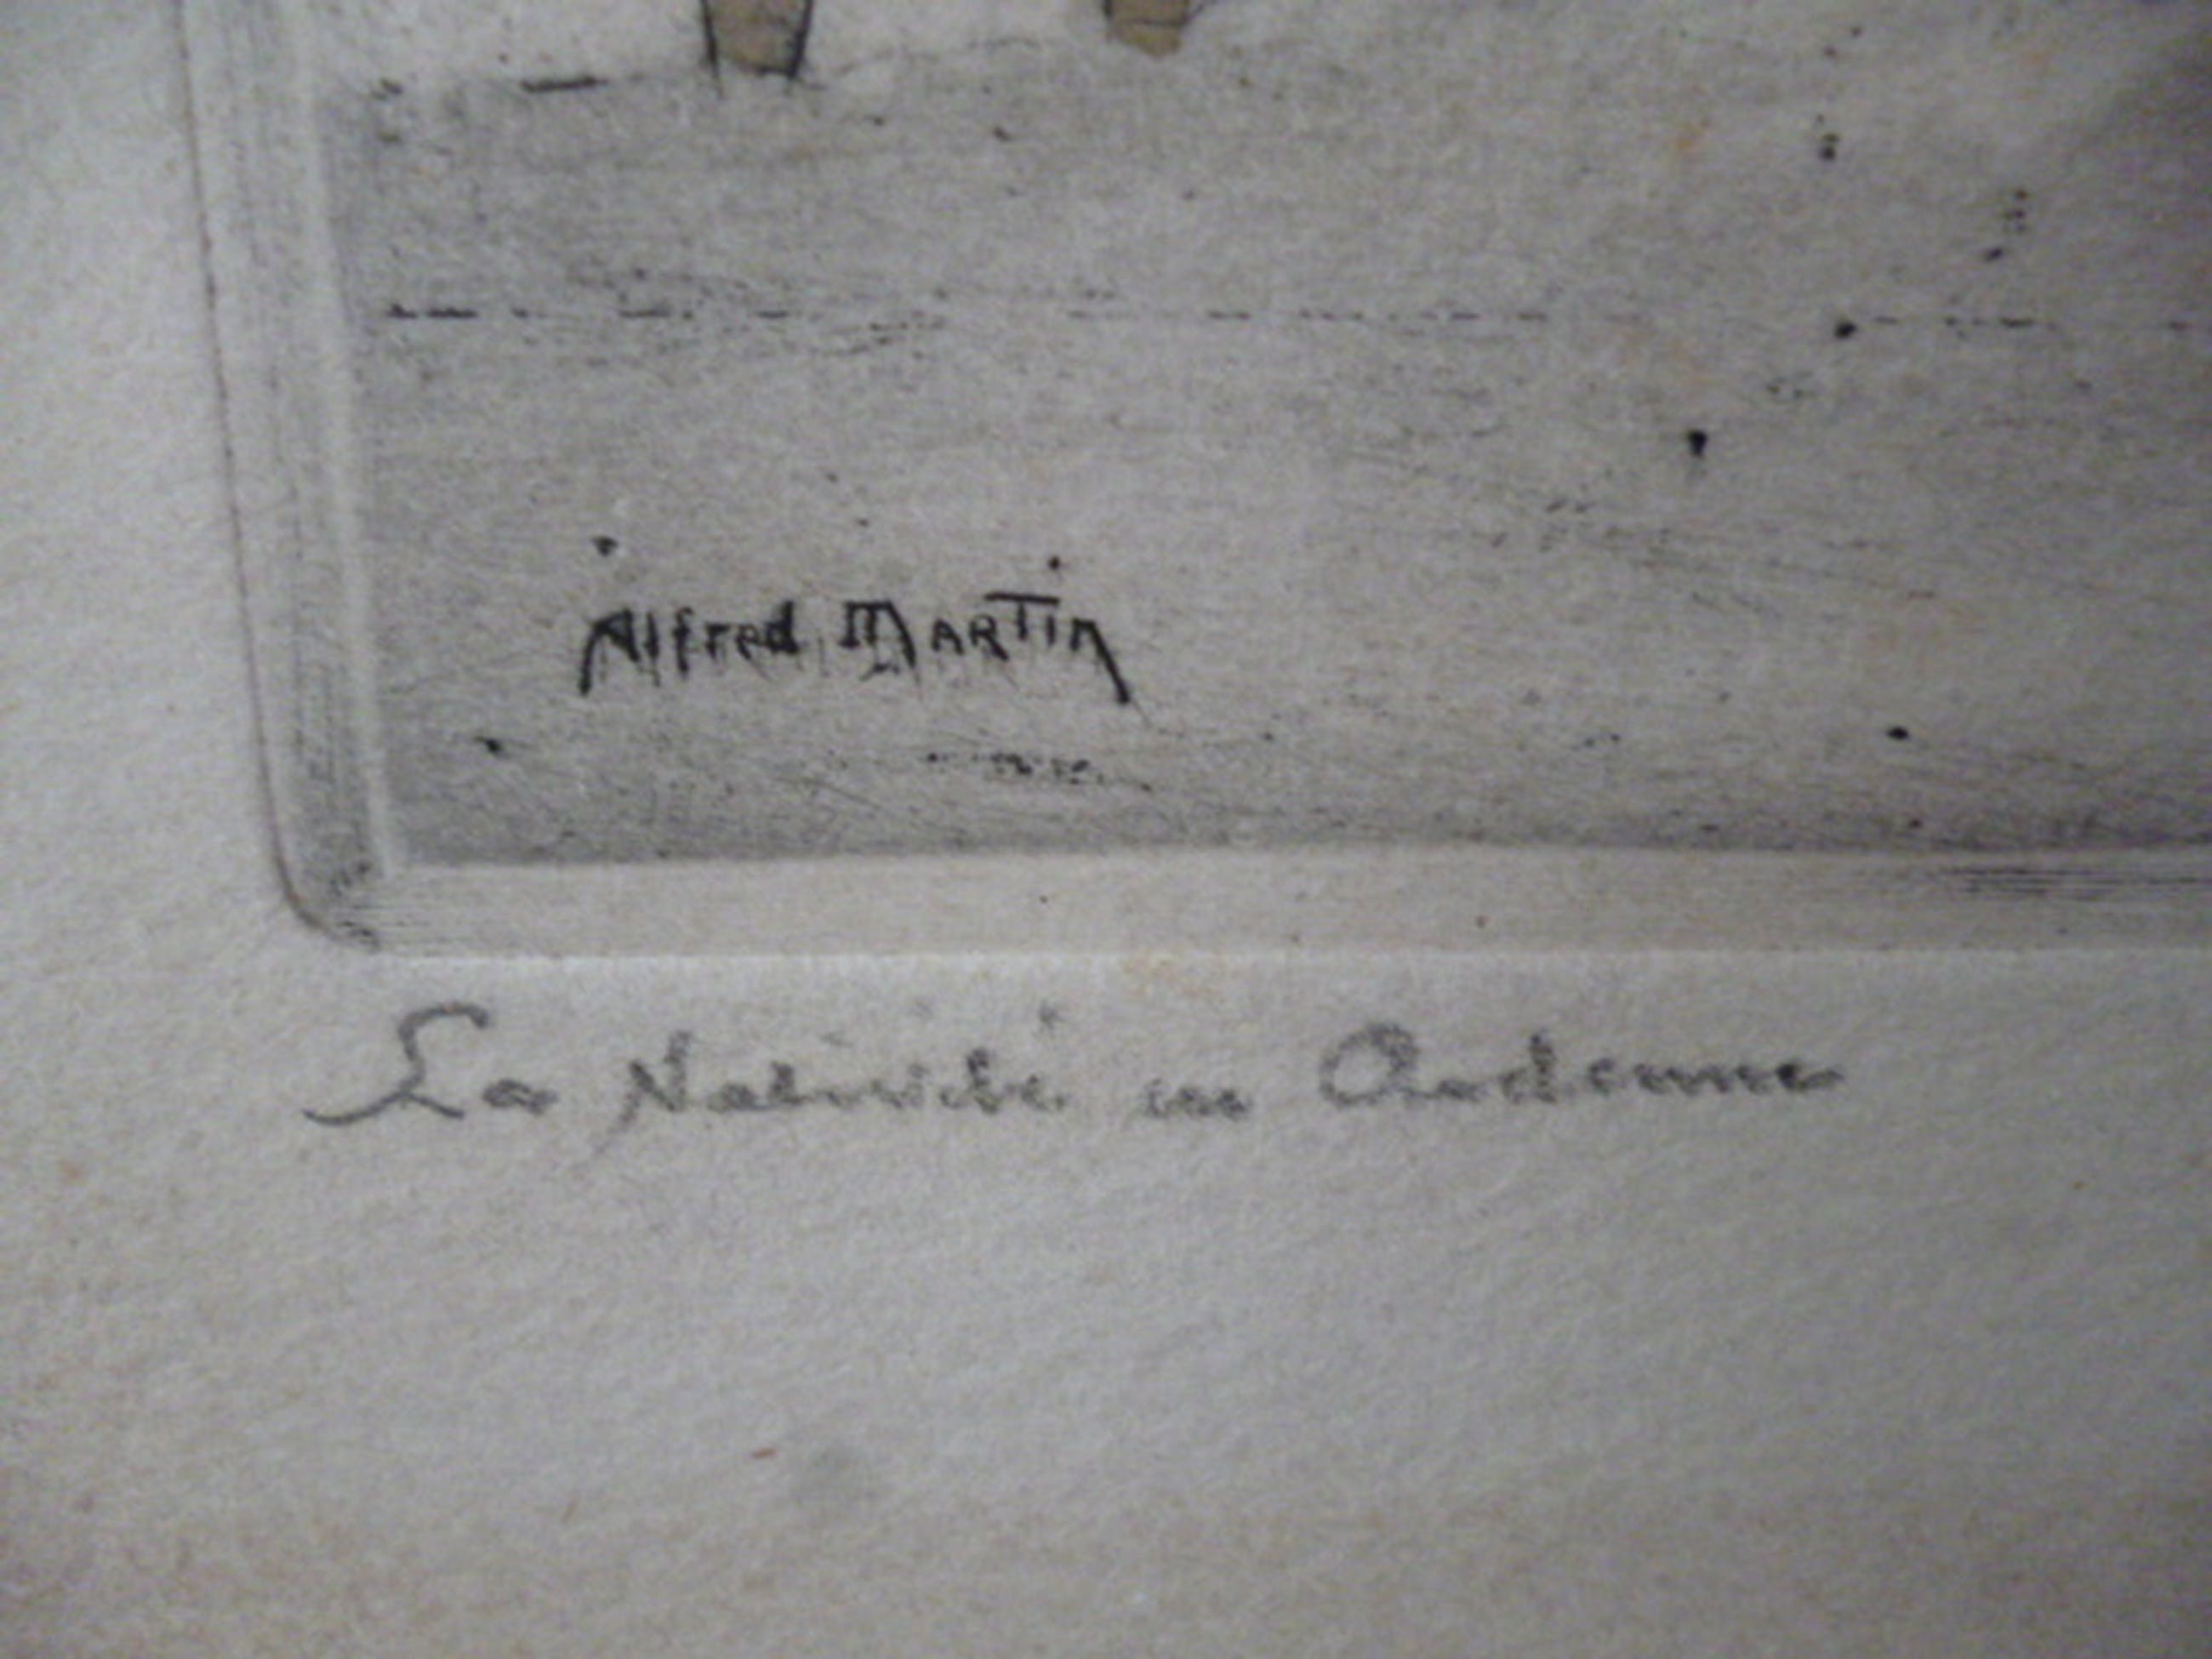 Alfred MARTIN
La Nativité en Ardenne